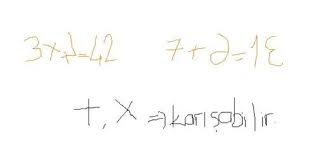 3x =42 7+∂=1Ɛ
+, x => karışabilir.